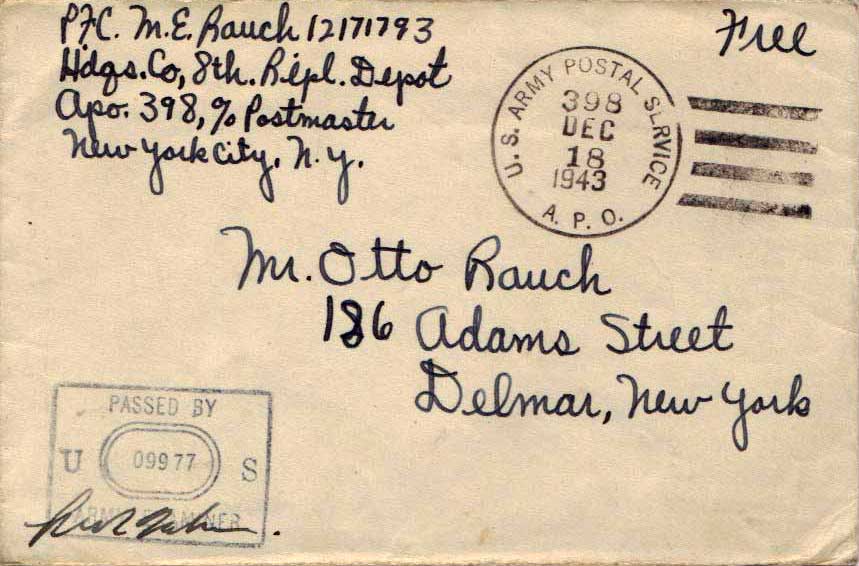 PFC. M.E. Rauch 12171793
Hdqs. Co, 8th. Repl. Depot
Apo. 398, % Postmaster
New York City, N.Y.
Free
U.S. ARMY POSTAL SERVICE
398
DEC
18
1943
A.P.O.
Mr. Otto Rauch
186 Adams Street
Delmar, New York
PASSED BY
U 09977 S
ARMY EXAMINER